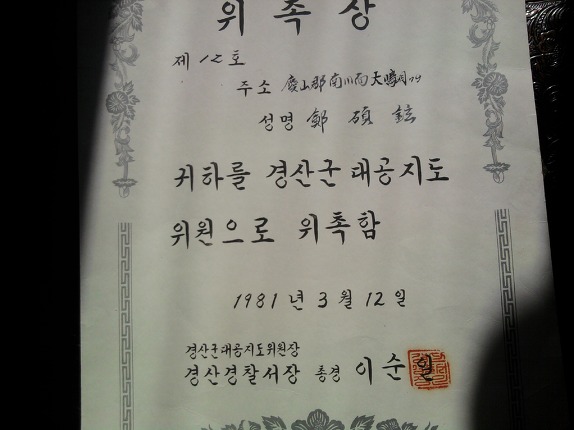 위촉상
제 12 호
주소 慶山郡 南川面 大鳴洞
성명 鄭 碩 鉉
귀하를 경산군 대공지도
위원으로 위촉함
1981 년 3 월 12 일
경산군대공지도위원장
경산경찰서장 총경 이 순 일